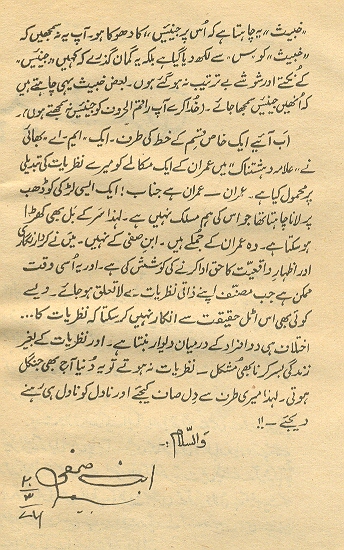 "خبیث" یہ چاہتا ہے کہ اُس پر جینئیس، کا دھوکا ہو۔ آپ یہ نہ سمجھیں کہ
"خبیث" کو، س، سے لکھ دیا گیا ہے بلکہ یہ گمان گذرے کہ کہیں "جینئیس"
کے نکتے اور شوشے بے ترتیب نہ ہو گئے ہوں۔ بعض خبیث یہی چاہتے ہیں
کہ اُنھیں جینئیس سمجھا جائے۔ (خدا کرے آپ راقم الحروف کو جینئیس نہ سمجھتے ہوں)۔
اَب آئیے ایک خاص قسم کے خط کی طرف۔ ایک "ایم۔ اے" بھائی
نے "علامہ دہشتناک" میں عمران کے ایک مکالمے کو میرے نظریات کی تبدیلی
پر محمول کیا ہے۔ عمران سے عمران ہے جناب! ایک ایسی لڑکی کو ڈھب
پر لانا چاہتا تھا جو اس کی ہم مسلک نہیں ہے۔ لہٰذا سر کے بل بھی کھڑا
ہو سکتا ہے۔ وہ عمران کے جملے ہیں۔ ابن صفی کے نہیں۔ میں نے کردار نگاری
اور اظہارِ واقعیت کا حق ادا کرنے کی کوشش کی ہے۔ اور یہ اُسی وقت
ممکن ہے جب مصنف اپنے ذاتی نظریات سے لا تعلق ہو جائے۔ ویسے
کوئی بھی اس اٹل حقیقت سے انکار نہیں کر سکتا کہ نظریات کا...
اختلاف ہی دو افراد کے درمیان دیوار بنتا ہے۔ اور نظریات کے بغیر
زندگی بسر کرنا بھی مُشکل۔ نظریات نہ ہوتے تو یہ دُنیا آج بھی جنگل
ہوتی۔ لہٰذا میری طرف سے دِل صاف کیجئے اور ناول کو ناول ہی رہنے
دیجئے۔!!
وَالسَّلام :۔
ابن صفی
۲۰
۳
۷۶